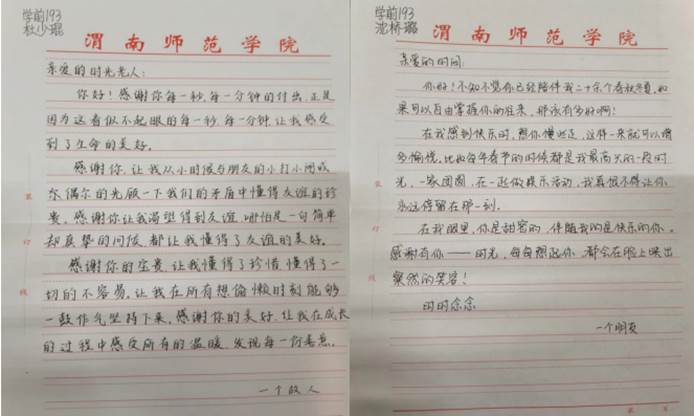 学前193
杜少琨
渭南师范学院
亲爱的时光老人：
你好！感谢你每一秒,每一分钟的付出,正是
因为这看似不起眼的每一秒,每一分钟,让我感受
到了生命的美好。
感谢你,让我从小时候与朋友的小打小闹或
东偶尔的光顾一下我们的矛盾中懂得友谊的珍
贵。感谢你让我渴望得到友谊,哪怕是一句简单
却真挚的问候,都让我懂得了友谊的美好。
感谢你的宝贵,让我懂得了珍惜,懂得了一
切的不容易,让我在所有想偷懒时刻能够
一鼓作气坚持下来,感谢你的美好,让我在成长
的过程中感受所有的温暖,发现每一份善意。
一个故人
装
订
线
学前193
沈桥璐
渭南师范学院
亲爱的时间：
你好！不知不觉你已经陪伴我二十余个春秋冬夏,如
果可以自由掌握你的往来,那该有多好啊！
在我感到快乐时,愿你慢些走,这样一来就可以增
多愉悦。比如每年春节的时候都是我最高兴的一段时
光,一家团圆,在一起做娱乐活动,我真恨不得让你
永远停留在那一刻。
在我眼里,你是甜蜜的,伴随我的是快乐的你。
感谢有你——时光,每每想起你,都会在脸上映出
灿然的笑容！
时时念念
一个朋友
装
订
线
第 页